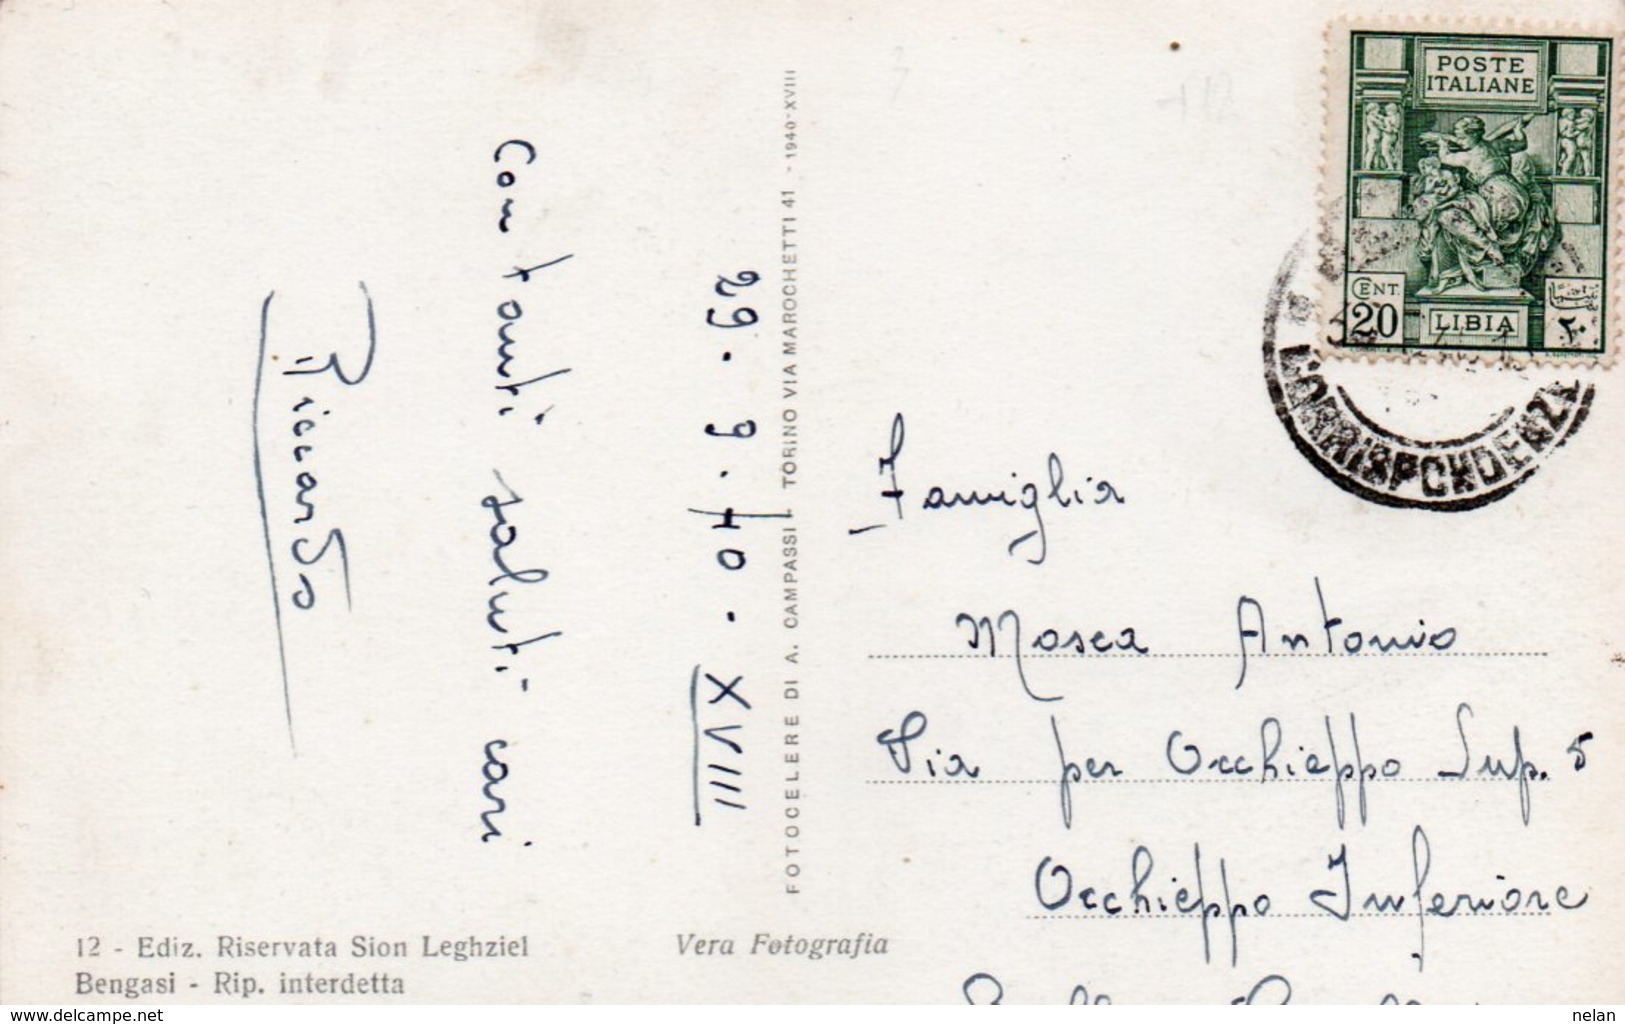 Con tanti saluti cari
Riccardo
29.9.40.XVIII
FOTOCELERE DI A. CAMPASSI - TORINO VIA MAROCHETTI 41 - 1940-XVIII
POSTE
ITALIANE
CENT.
20
LIBIA
٢٠
CORRISPONDENZE
Famiglia
Mosca Antonio
Via per Occhieppo Sup. 5
Occhieppo Inferiore
12 - Ediz. Riservata Sion Leghziel
Bengasi - Rip. interdetta
Vera Fotografia
delcampe.net
nelan